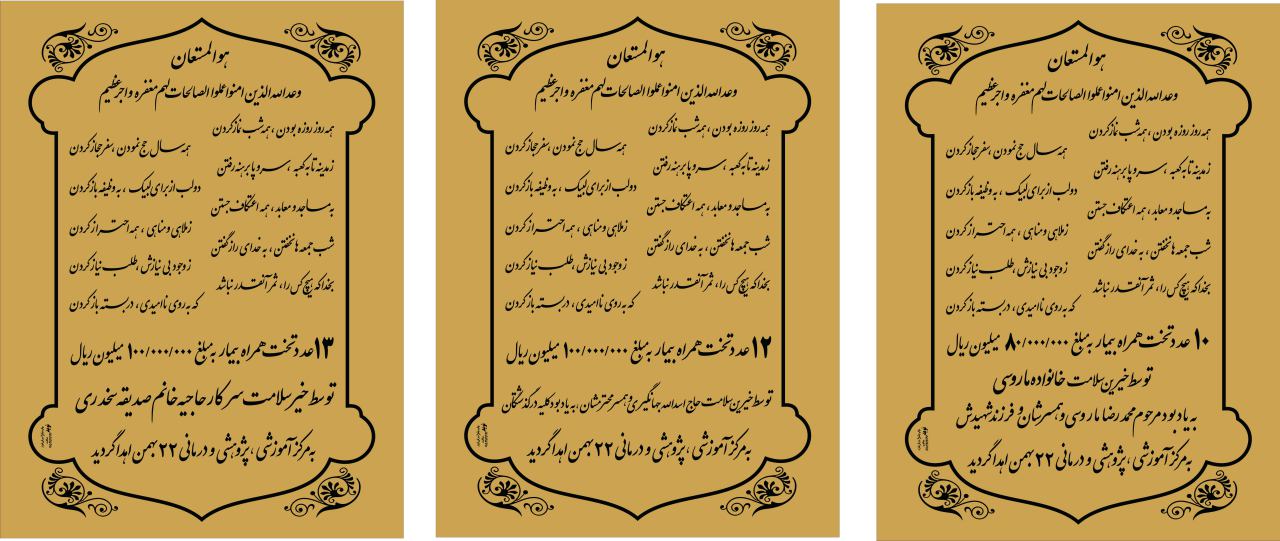 هوالمستعان
وعدالله الذین امنوا عملوا الصالحات لهم مغفره و اجر عظیم
همه روز روزه بودن ، همه شب نماز کردن
همه سال حج نمودن ، سفر حجاز کردن
ز مدینه تا به کعبه ، سر و پا برهنه رفتن
دو لب از برای لبیک ، به وظیفه باز کردن
به مساجد و معابد ، همه اعتکاف جستن
ز ملاهی و مناهی ، همه احتراز کردن
شب جمعه ها نخفتن ، به خدای راز گفتن
ز وجود بی نیازش ، طلب نیاز کردن
بخدا که هیچ کس را ، ثمر آنقدر نباشد
که به روی ناامیدی ، در بسته باز کردن
۱۳ عدد تخت همراه بیمار به مبلغ ۱۰۰/۰۰۰/۰۰۰ میلیون ریال
توسط خیر سلامت سرکار حاجیه خانم صدیقه سخدری
به مرکز آموزشی ، پژوهشی و درمانی ۲۲ بهمن اهدا گردید
هوالمستعان
وعدالله الذین امنوا عملوا الصالحات لهم مغفره و اجر عظیم
همه روز روزه بودن ، همه شب نماز کردن
همه سال حج نمودن ، سفر حجاز کردن
ز مدینه تا به کعبه ، سر و پا برهنه رفتن
دو لب از برای لبیک ، به وظیفه باز کردن
به مساجد و معابد ، همه اعتکاف جستن
ز ملاهی و مناهی ، همه احتراز کردن
شب جمعه ها نخفتن ، به خدای راز گفتن
ز وجود بی نیازش ، طلب نیاز کردن
بخدا که هیچ کس را ، ثمر آنقدر نباشد
که به روی ناامیدی ، در بسته باز کردن
۱۲ عدد تخت همراه بیمار به مبلغ ۱۰۰/۰۰۰/۰۰۰ میلیون ریال
توسط خیرین سلامت حاج اسدالله جهانگیری و همسر محترمشان ، به یادبود کلیه درگذشتگان
به مرکز آموزشی ، پژوهشی و درمانی ۲۲ بهمن اهدا گردید
هوالمستعان
وعدالله الذین امنوا عملوا الصالحات لهم مغفره و اجر عظیم
همه روز روزه بودن ، همه شب نماز کردن
همه سال حج نمودن ، سفر حجاز کردن
ز مدینه تا به کعبه ، سر و پا برهنه رفتن
دو لب از برای لبیک ، به وظیفه باز کردن
به مساجد و معابد ، همه اعتکاف جستن
ز ملاهی و مناهی ، همه احتراز کردن
شب جمعه ها نخفتن ، به خدای راز گفتن
ز وجود بی نیازش ، طلب نیاز کردن
بخدا که هیچ کس را ، ثمر آنقدر نباشد
که به روی ناامیدی ، در بسته باز کردن
۱۰ عدد تخت همراه بیمار به مبلغ ۸۰/۰۰۰/۰۰۰ میلیون ریال
توسط خیرین سلامت خانواده ماروسی
به یادبود مرحوم محمدرضا ماروسی و همسرشان و فرزند شهیدش
به مرکز آموزشی ، پژوهشی و درمانی ۲۲ بهمن اهدا گردید